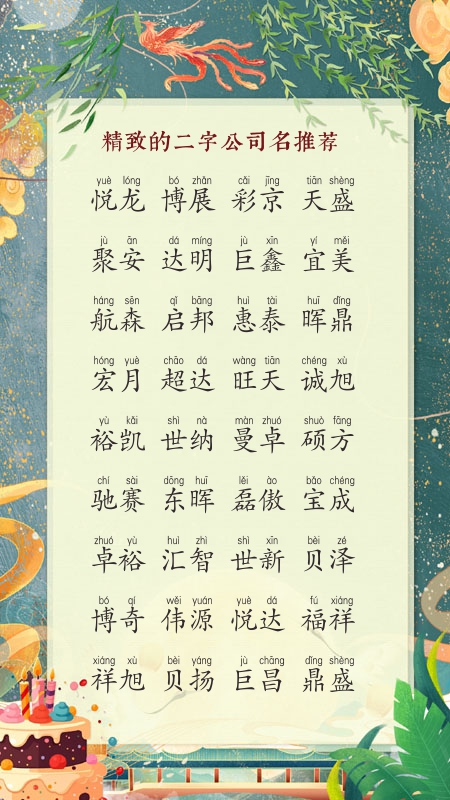 精致的二字公司名推荐
yuè lóng bó zhǎn cǎi jīng tiān shèng
悦龙 博展 彩京 天盛
jù ān dá míng jù xīn yí měi
聚安 达明 巨鑫 宜美
háng sēn qǐ bāng huì tài huī dǐng
航森 启邦 惠泰 晖鼎
hóng yuè chāo dá wàng tiān chéng xù
宏月 超达 旺天 诚旭
yù kǎi shì nà màn zhuó shuò fāng
裕凯 世纳 曼卓 硕方
chí sài dōng huī lěi ào bǎo chéng
驰赛 东晖 磊傲 宝成
zhuó yù huì zhì shì xīn bèi zé
卓裕 汇智 世新 贝泽
bó qí wěi yuán yuè dá fú xiáng
博奇 伟源 悦达 福祥
xiáng xù bèi yáng jù chāng dǐng shèng
祥旭 贝扬 巨昌 鼎盛